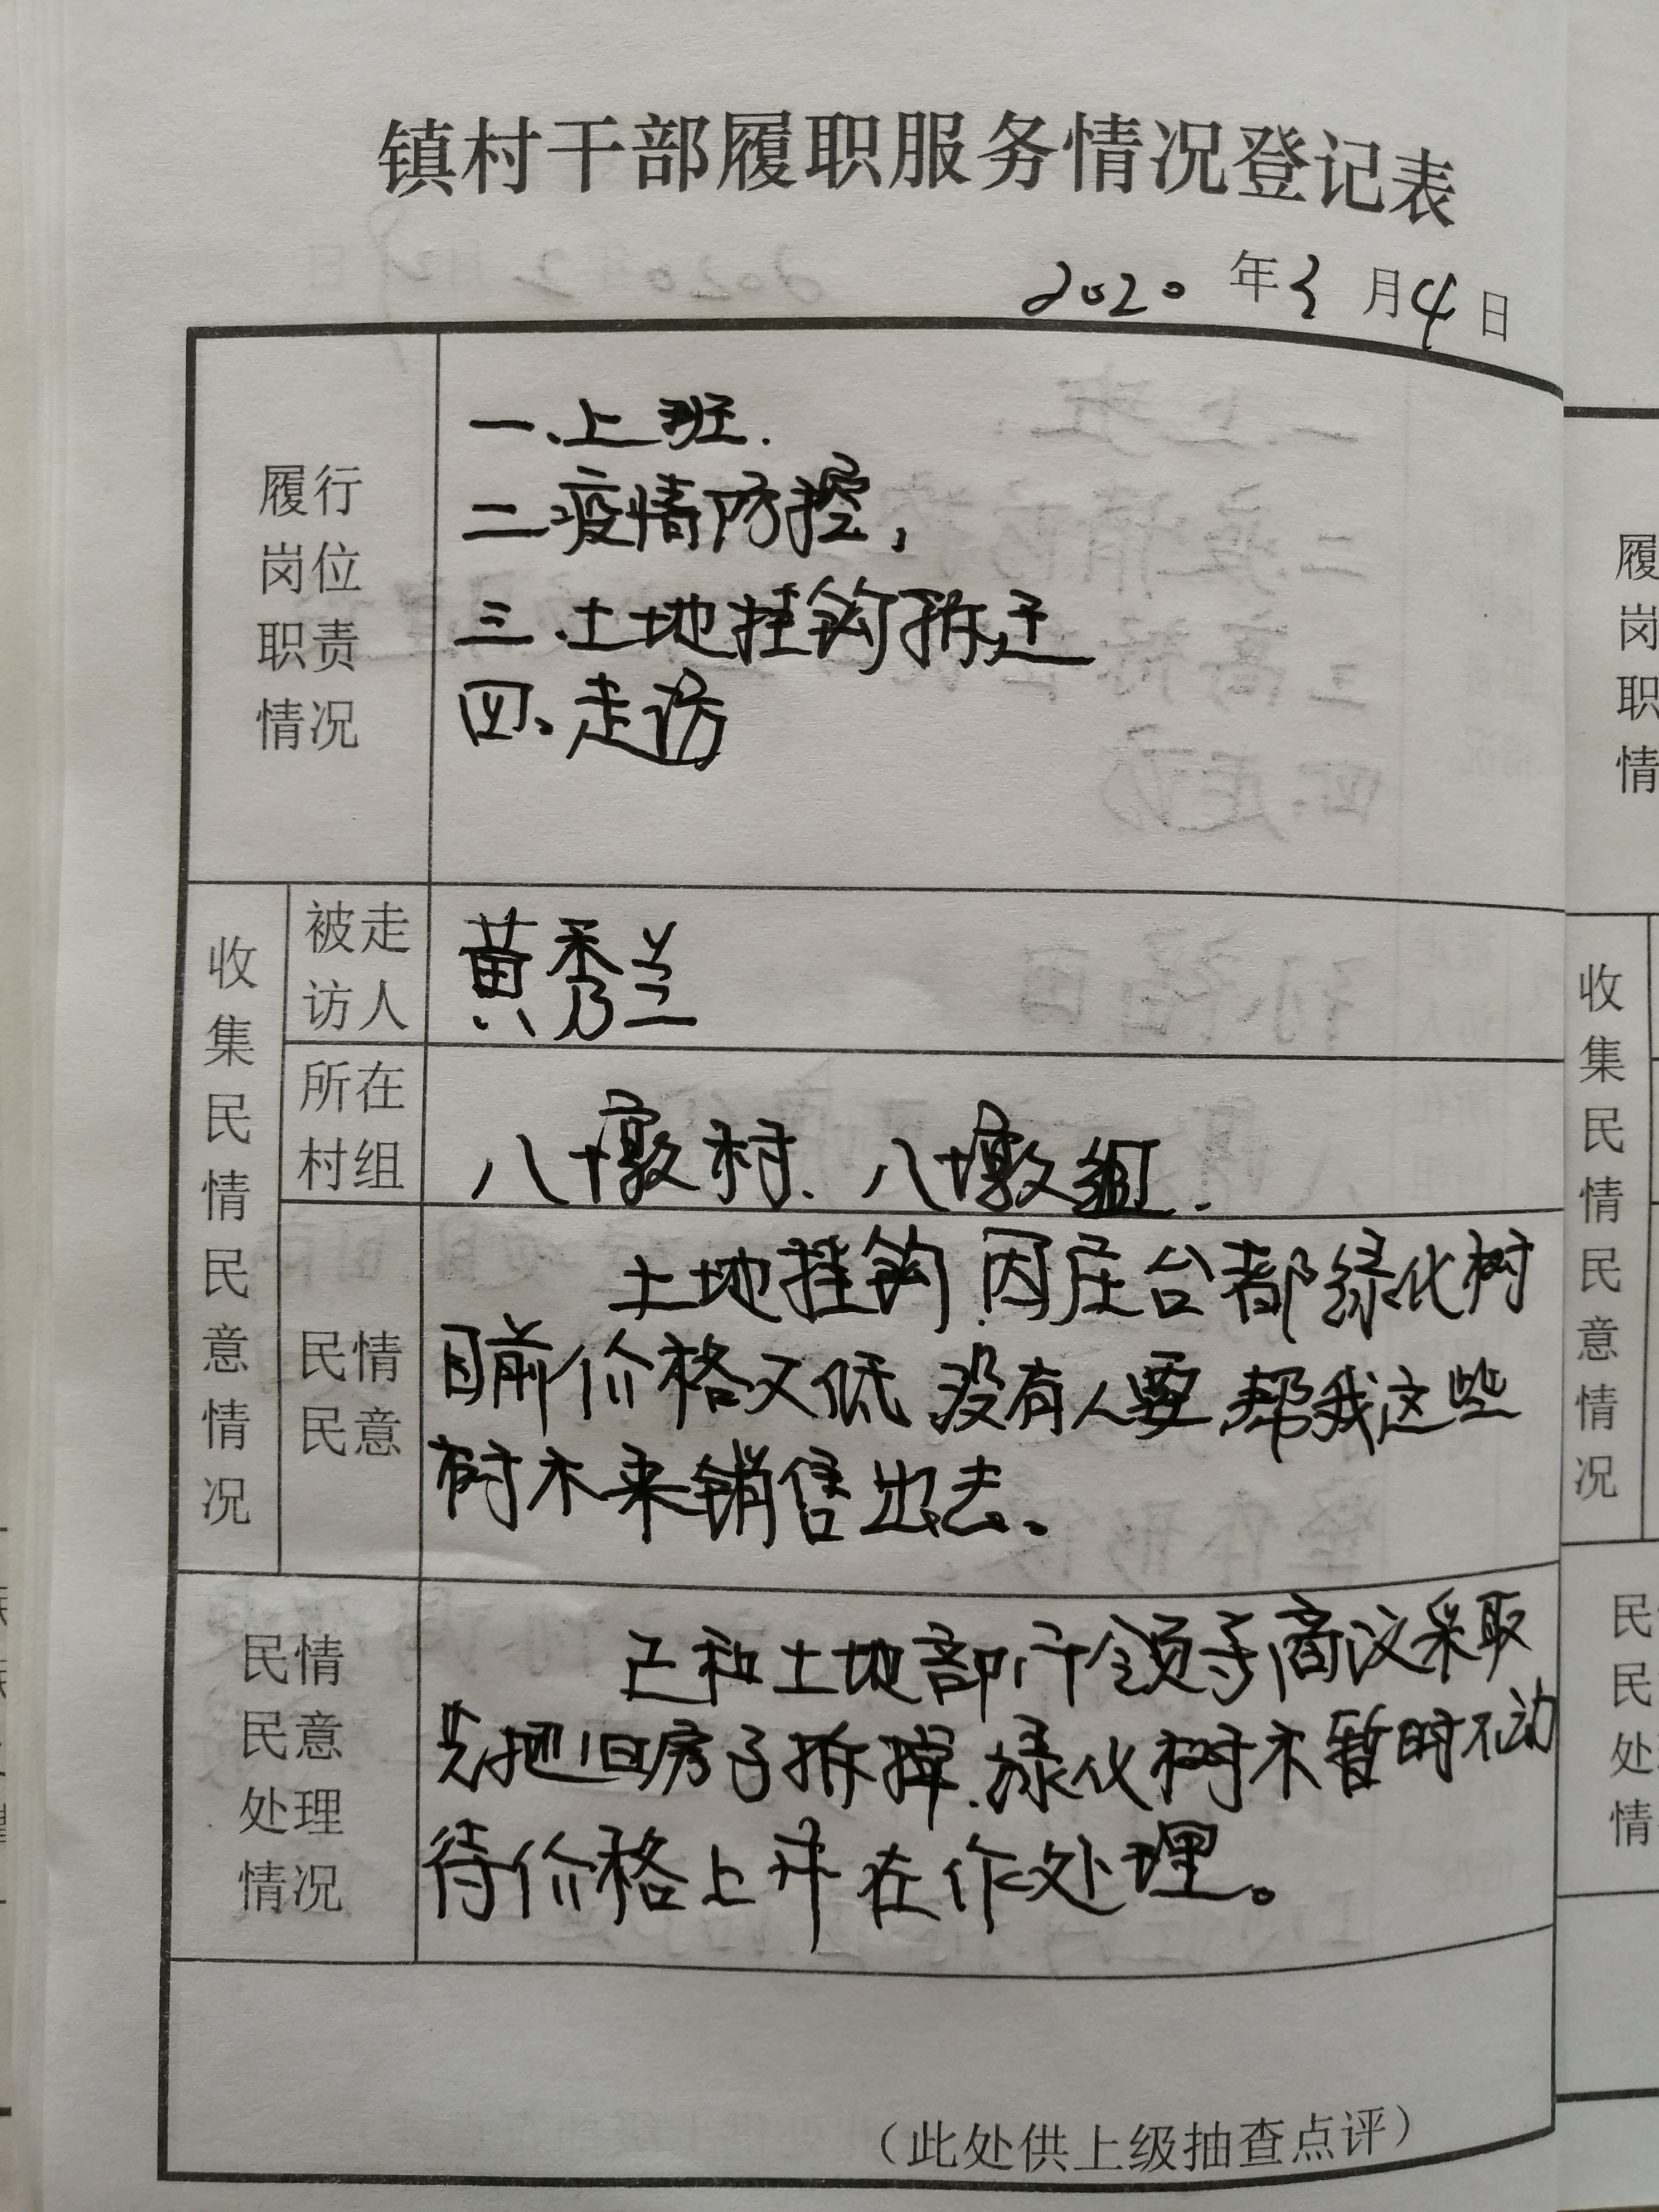 镇村干部履职服务情况登记表
2020年3月4日
履行
岗位
职责
情况
一、上班.
二疫情防控,
三、土地挂钩拆迁
四、走访
收集民情民意情况
被走
访人
黄秀兰
所在
村组
八墩村、八墩组.
民情
民意
土地挂钩.因庄台都绿化树
目前价格又低没有人要帮我这些
树木来销售出去。
民情
民意
处理
情况
已和土地部门领导商议采取
先把旧房子拆掉.绿化树木暂时不动
待价格上升在作处理。
（此处供上级抽查点评）
履
岗
职
情
收集民情民意情况
民
民
处
情